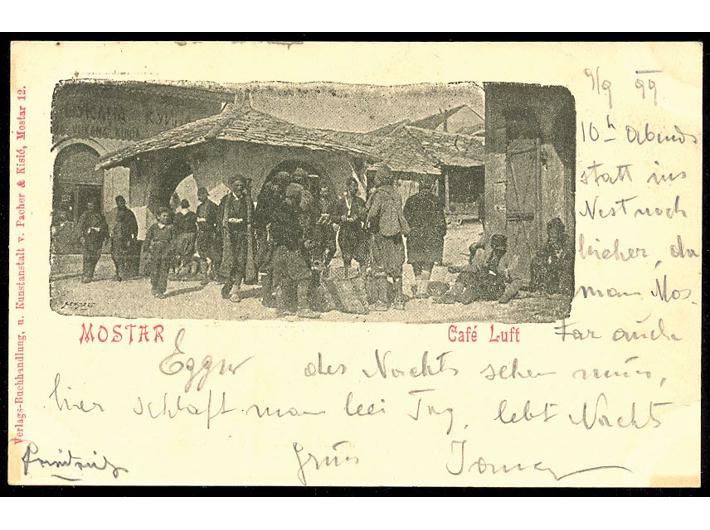 9/9 99
10 h Abends
statt ins
Nest noch
hieher, da
man Mos-
tar auch
des Nachts sehen muss,
hier schläft man bei Tag, lebt Nachts
Gruss
MOSTAR
Café Luft
Verlags-Buchhandlung, u. Kunstanstalt v. Pacher & Kisić, Mostar 12.